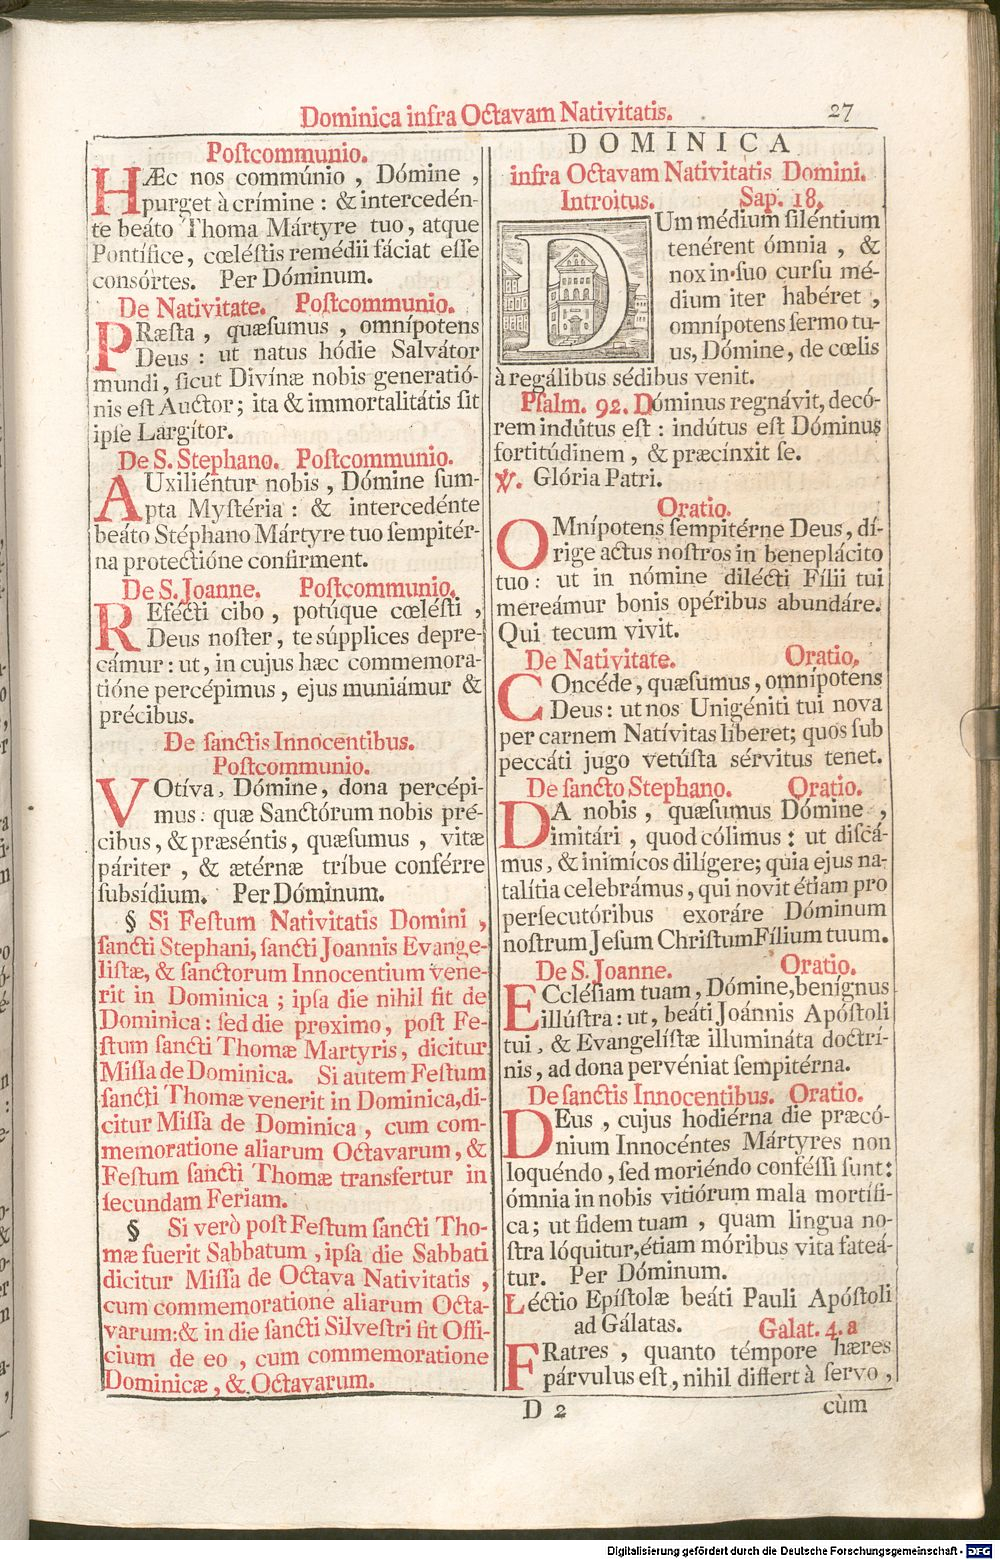 Dominica infra Octavam Nativitatis. 27
Postcommunio.
HÆc nos commúnio , Dómine ,
purget à crímine : & intercedén-
te beáto Thoma Mártyre tuo, atque
Pontífice, cœléstis remédii fáciat esse
consórtes. Per Dóminum.
De Nativitate. Postcommunio.
PRæsta , quæsumus , omnípotens
Deus : ut natus hódie Salvátor
mundi, sicut Divínæ nobis generatió-
nis est Auctor; ita & immortalitátis sit
ipse Largítor.
De S. Stephano. Postcommunio.
AUxiliéntur nobis , Dómine sum-
pta Mystéria : & intercedénte
beáto Stéphano Mártyre tuo sempitér-
na protectióne confirment.
De S. Joanne. Postcommunio.
REfécti cibo , potúque cœlésti ,
Deus noster, te súpplices depre-
cámur: ut, in cujus hæc commemora-
tióne percépimus, ejus muniámur &
précibus.
De sanctis Innocentibus.
Postcommunio.
VOtíva, Dómine, dona percépi-
mus: quæ Sanctórum nobis pré-
cibus, & præséntis, quæsumus , vitæ
páriter , & ætérnæ tríbue conférre
subsídium. Per Dóminum.
§ Si Festum Nativitatis Domini ,
sancti Stephani, sancti Joannis Evange-
listæ, & sanctorum Innocentium vene-
rit in Dominica ; ipsa die nihil fit de
Dominica: sed die proximo, post Fe-
stum sancti Thomæ Martyris, dicitur
Missa de Dominica. Si autem Festum
sancti Thomæ venerit in Dominica,di-
citur Missa de Dominica, cum com-
memoratione aliarum Octavarum, &
Festum sancti Thomæ transfertur in
secundam Feriam.
§ Si verò post Festum sancti Tho-
mæ fuerit Sabbatum , ipsa die Sabbati
dicitur Missa de Octava Nativitatis ,
cum commemoratione aliarum Octa-
varum:& in die sancti Silvestri fit Offi-
cium de eo , cum commemoratione
Dominicæ, & Octavarum.
DOMINICA
infra Octavam Nativitatis Domini.
Introitus. Sap. 18.
DUm médium siléntium
tenérent ómnia , &
nox in suo cursu mé-
dium iter habéret ,
omnípotens sermo tu-
us, Dómine, de cœlis
à regálibus sédibus venit.
Psalm. 92. Dóminus regnávit, decó-
rem indútus est : indútus est Dóminus
fortitúdinem , & præcínxit se.
℣. Glória Patri.
Oratio.
OMnípotens sempitérne Deus, dí-
rige actus nostros in beneplácito
tuo: ut in nómine dilécti Fílii tui
mereámur bonis opéribus abundáre.
Qui tecum vivit.
De Nativitate. Oratio.
COncéde, quæsumus, omnípotens
Deus: ut nos Unigéniti tui nova
per carnem Natívitas líberet; quos sub
peccáti jugo vetústa sérvitus tenet.
De sancto Stephano. Oratio.
DA nobis , quæsumus Dómine ,
imitári , quod cólimus : ut discá-
mus, & inimícos dilígere; quia ejus na-
talítia celebrámus, qui novit étiam pro
persecutóribus exoráre Dóminum
nostrum Jesum Christum Fílium tuum.
De S. Joanne. Oratio.
ECclésiam tuam, Dómine,benígnus
illústra: ut, beáti Joánnis Apóstoli
tui, & Evangelístæ illumináta doctrí-
nis, ad dona pervéniat sempitérna.
De sanctis Innocentibus. Oratio.
DEus , cujus hodiérna die præcó-
nium Innocéntes Mártyres non
loquéndo, sed moriéndo conféssi sunt:
ómnia in nobis vitiórum mala mortífi-
ca; ut fidem tuam , quam lingua no-
stra lóquitur,étiam móribus vita fateá-
tur. Per Dóminum.
Léctio Epístolæ beáti Pauli Apóstoli
ad Gálatas. Galat. 4. a
FRatres , quanto témpore hæres
párvulus est, nihil differt à servo ,
D 2 cùm
Digitalisierung gefördert durch die Deutsche Forschungsgemeinschaft - DFG